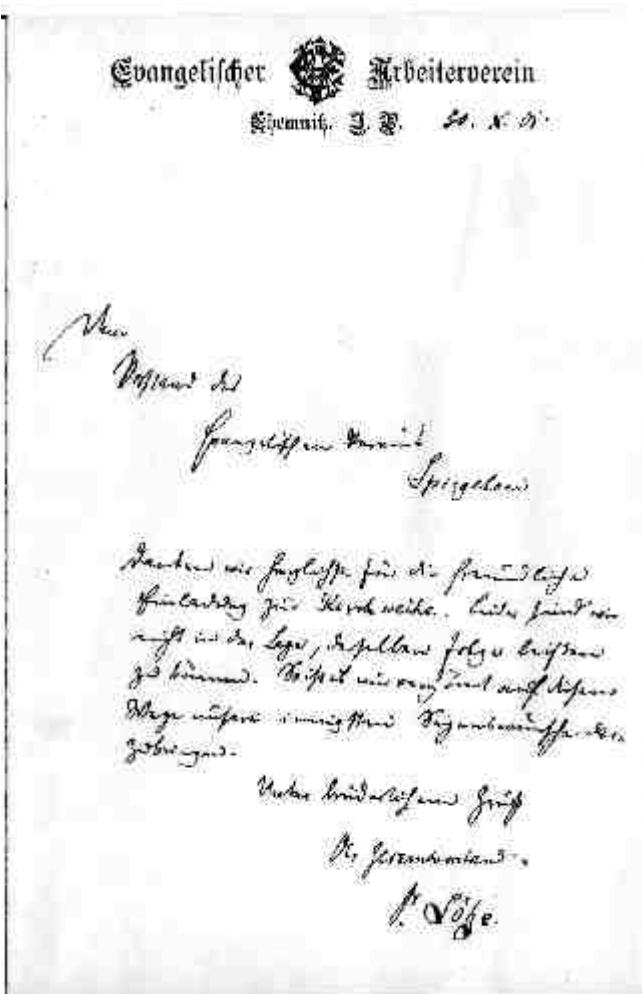 Evangelischer Arbeiterverein
Chemnitz. J. P. 30. X. 01.
Dem
Vorstand des
Evangelischen Vereins
Spiegelau
danken wir herzlichst für die freundliche
Einladung zur Kirchweihe. Leider sind wir
nicht in der Lage, derselben Folge leisten
zu können. Es ist uns vergönnt auf diesem
Wege unsere innigsten Segenswünsche
zubringen.
Unter brüderlichem Gruß
Der Gesamtvorstand.